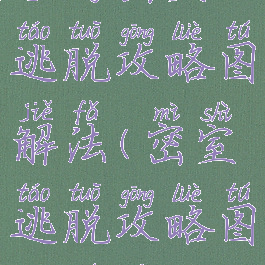 táo tuō gōng lüè tú
逃脱攻略图
jiě fǎ mì shì
解法(密室
táo tuō gōng lüè tú
逃脱攻略图